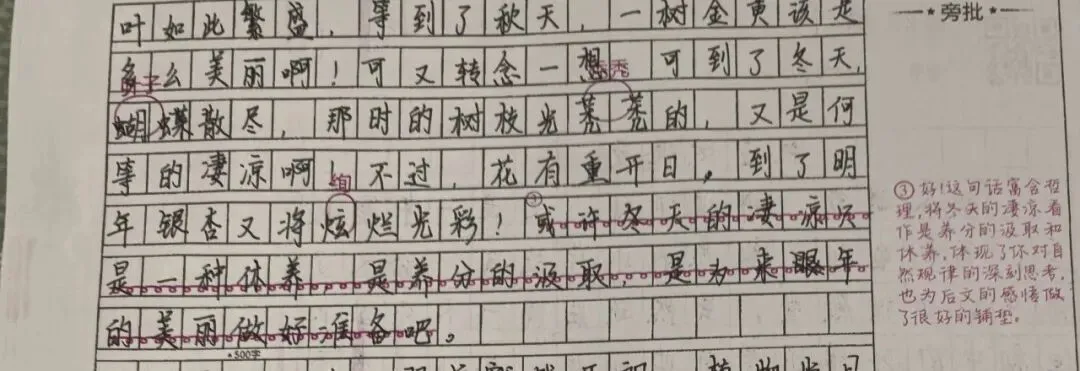 叶如此繁盛，等到了秋天，一树金黄该是
多么美丽啊！可又转念一想，可到了冬天，
蝴蝶散尽，那时的树枝光秃秃的，又是何
等的凄凉啊！不过，花有重开日，到了明
年银杏又将炫烂光彩！或许冬天的凄凉只
是一种休养，是养分的汲取，是为来眼年
的美丽做好准备吧。
*500字
旁批
③好！这句话寓含哲
理，将冬天的凄凉看
作是养分的汲取和
休养，体现了你对自
然规律的深刻思考，
也为后文的感悟做
了很好的铺垫。
绚
③